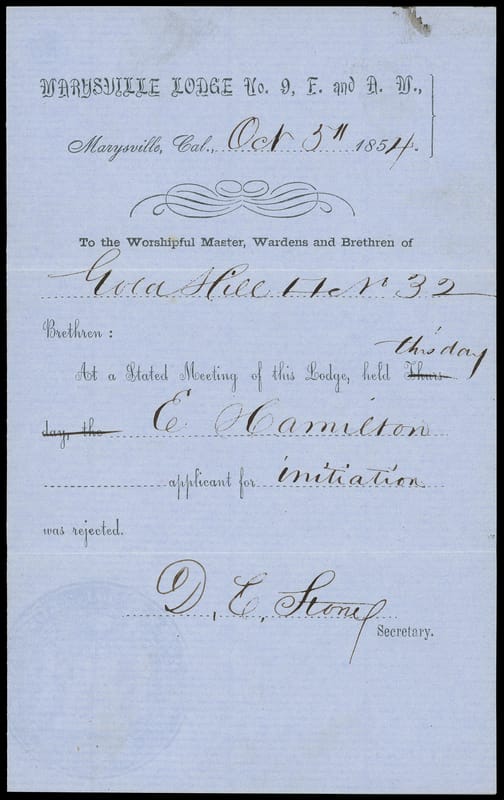 MARYSVILLE LODGE No. 9, F. and A. M.,
Marysville, Cal., Oct 5th 1854.
To the Worshipful Master, Wardens and Brethren of
Gold Hill No 32
Brethren:
this day
At a Stated Meeting of this Lodge, held Thurs-
day, the E Hamilton
applicant for initiation
was rejected.
D. E. Stone
Secretary.